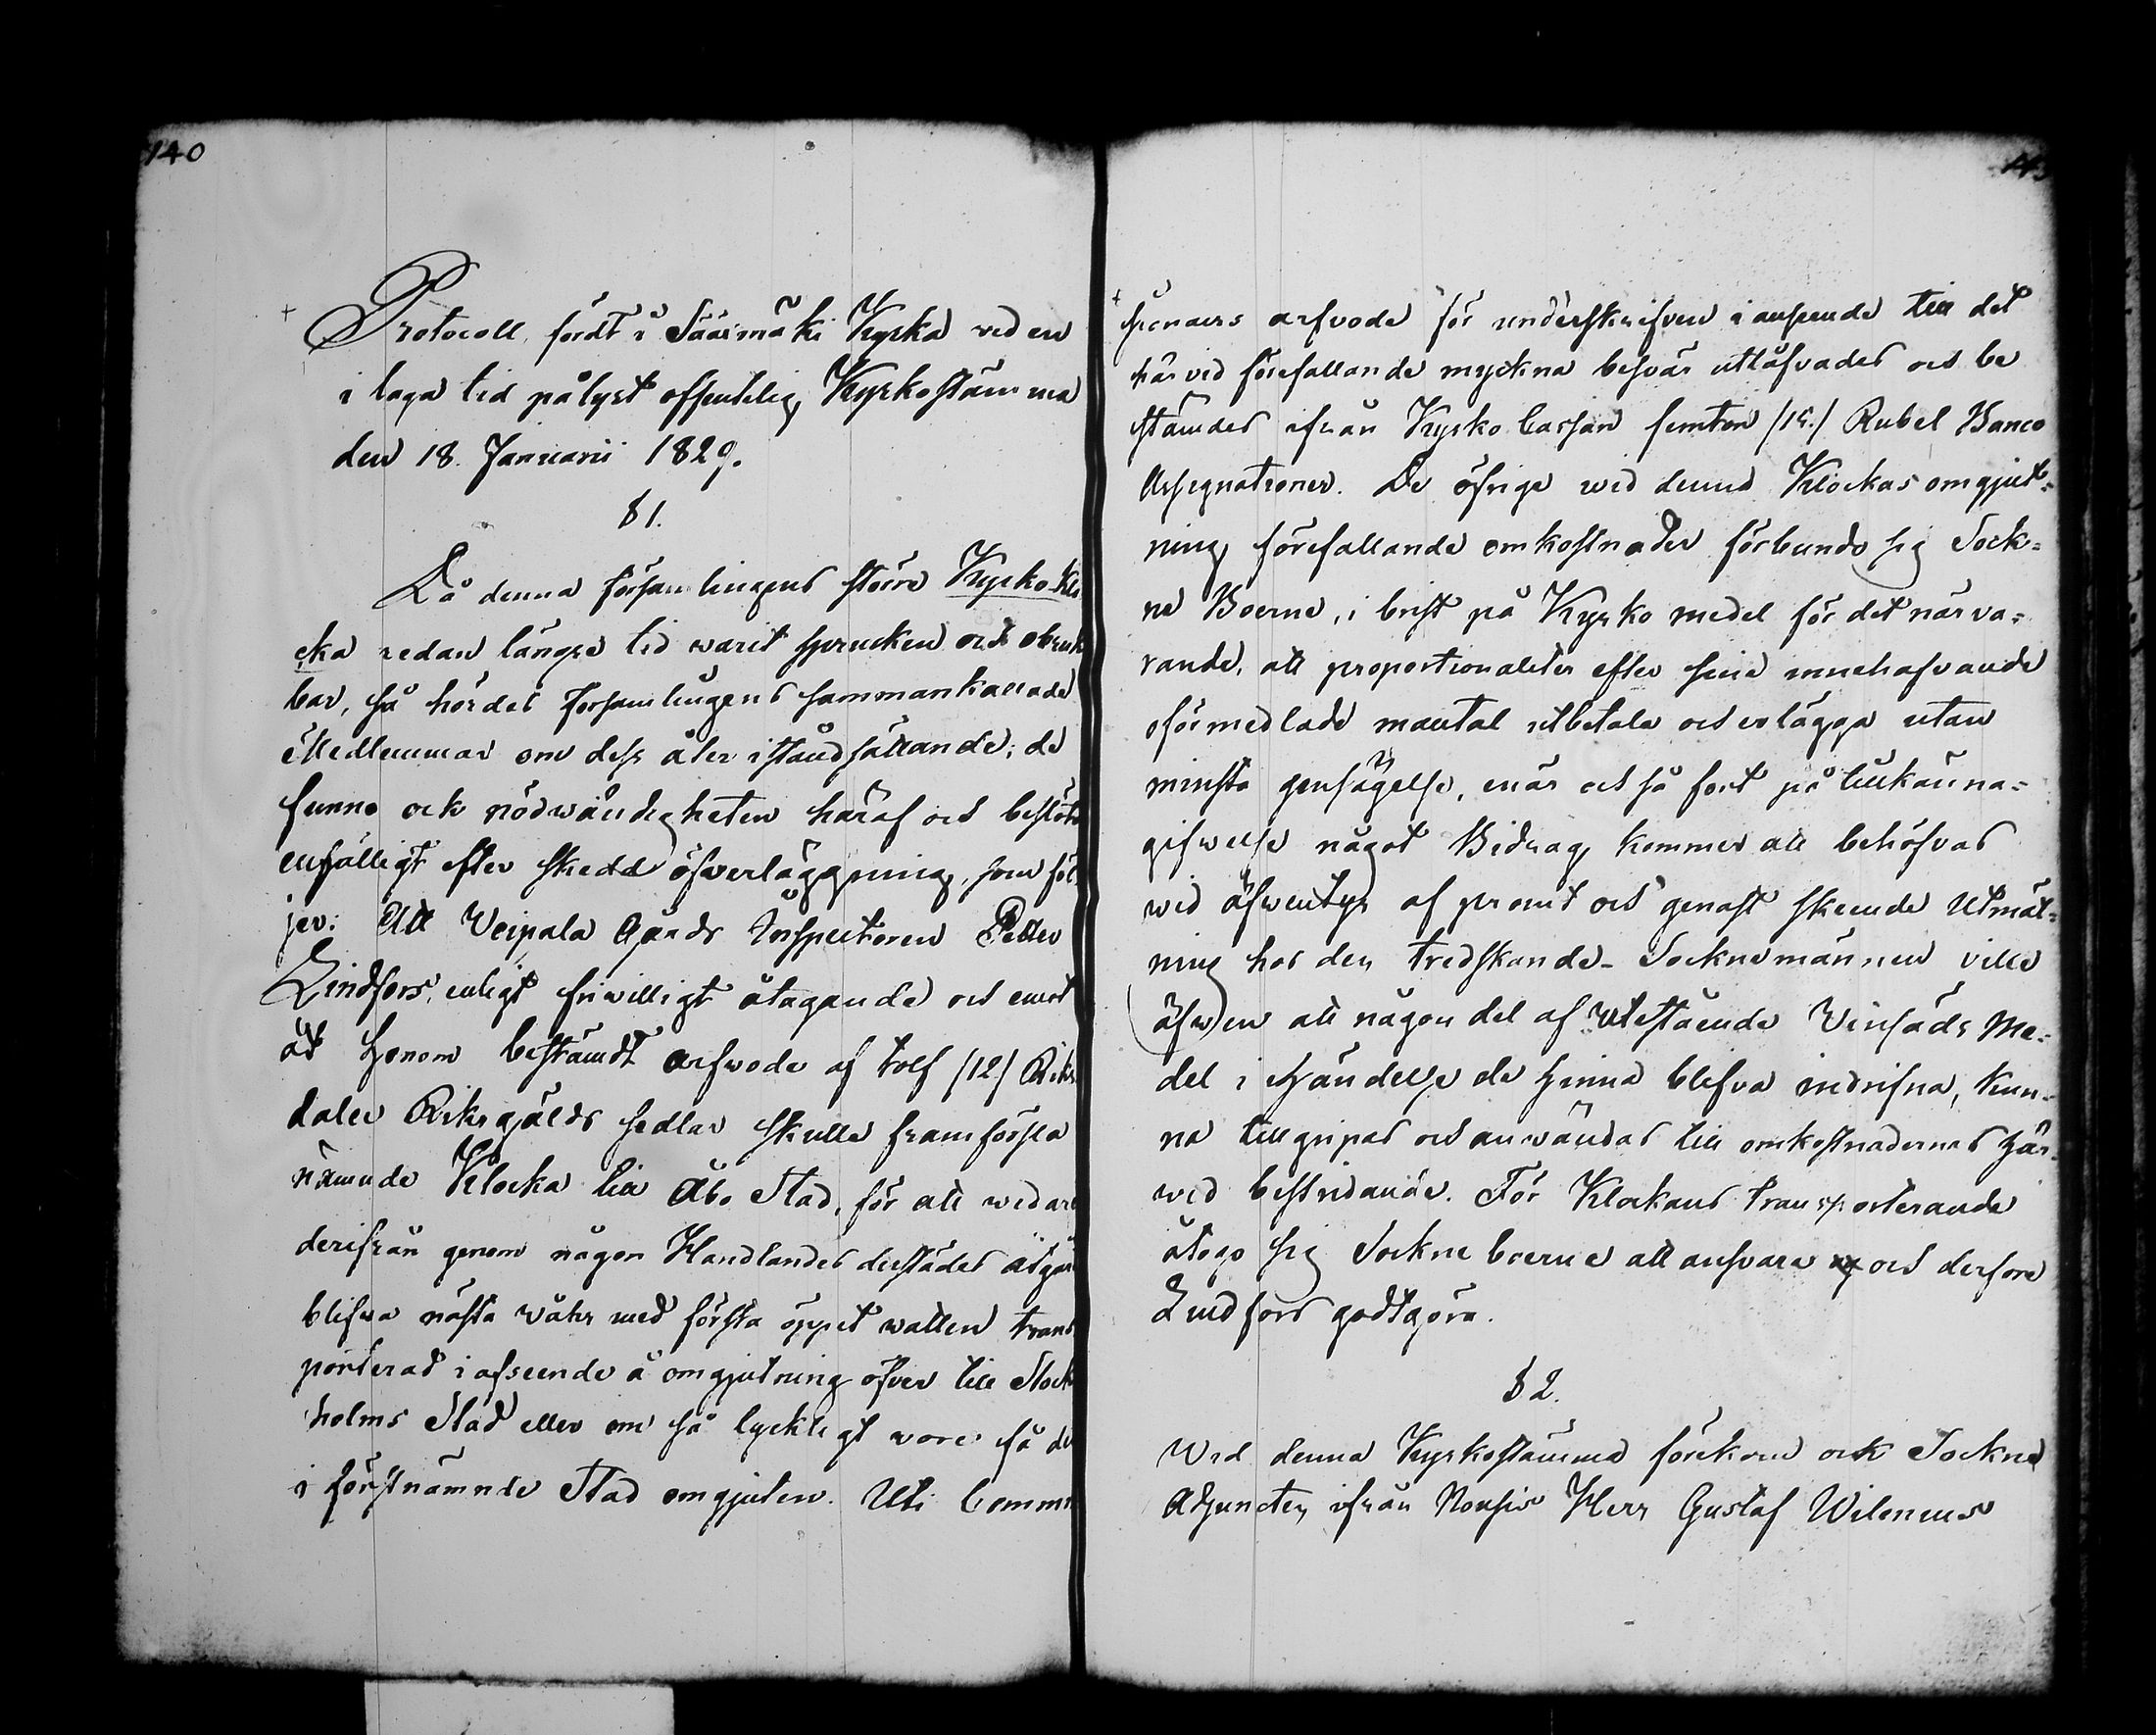 140
Protocoll, fördt i Sääxmäki Kyrka vid en
i laga tid pålyst offentelig Kyrkostämma
den 18. Januarii 1829.
§ 1.
Då denna Församlingens större Kyrko-Klo
cka redan längre tid warit sprucken och obruk
bar, så hördes Församlingens sammankallade
Medlemmar om dess åter iståndsättande; de
funno ock nödwändigheten häraf och beslöto
enhälligt efter skedd öfwerläggning, som föl-
jer: Att Voipala Gårds Inspectoren Petter
Lindfors, enligt friwilligt åtagande och emot
åt honom bestämdt arfwode af tolf /12/ Riks
daler Riksgälds sedlar skulle framforsla
nämnde Klocka till Åbo Stad, för att widare
derifrån genom någon Handlandes derstädes åtgärd
blifwa nästa wåhr med första öppet watten trans
porterad i afseende å omgjutning öfver till Stock
holms Stad eller om så lyckligt wore få den
i förstnämnde Stad omgjuten. Uti Commis
sionairs arfvode för underskrifven i anseende till det
härvid förefallande myckna besvär utlåfvades och be
stämdes ifrån Kyrko Cassan femton /15./ Rubel Banco
Assignationer. De öfrige wid denna Klockas omgjut=
ning förefallande omkostnader förbundo sig Sock=
ne Boerne, i brist på Kyrko medel för det närva=
rande, att proportionaliter efter sine innehafvande
oförmedlade mantal utbetala och erlägga utan
minsta gensägelse, enär och så fort på tillkänna=
gifwelse något Bidrag kommer att behöfvas
wid äfwentyr af promt och genast skeende Utmät=
ning hos den tredskande- Socknemännen ville
äfwen att någon del af Utestående Vinsäds Me=
del i händelse de hinna blifva indrifna, kun-
na tillgripas och anwändas till omkostnadernas här-
wid bestridande. För Klockans transporterande
åtogo sig Sockne boerne att ansvara och derfore
Lindfors godtgöra.
§ 2.
Wid denna Kyrkostämma förekom ock Sockne
Adjuncten ifrån Herr Gustaf Wilenius